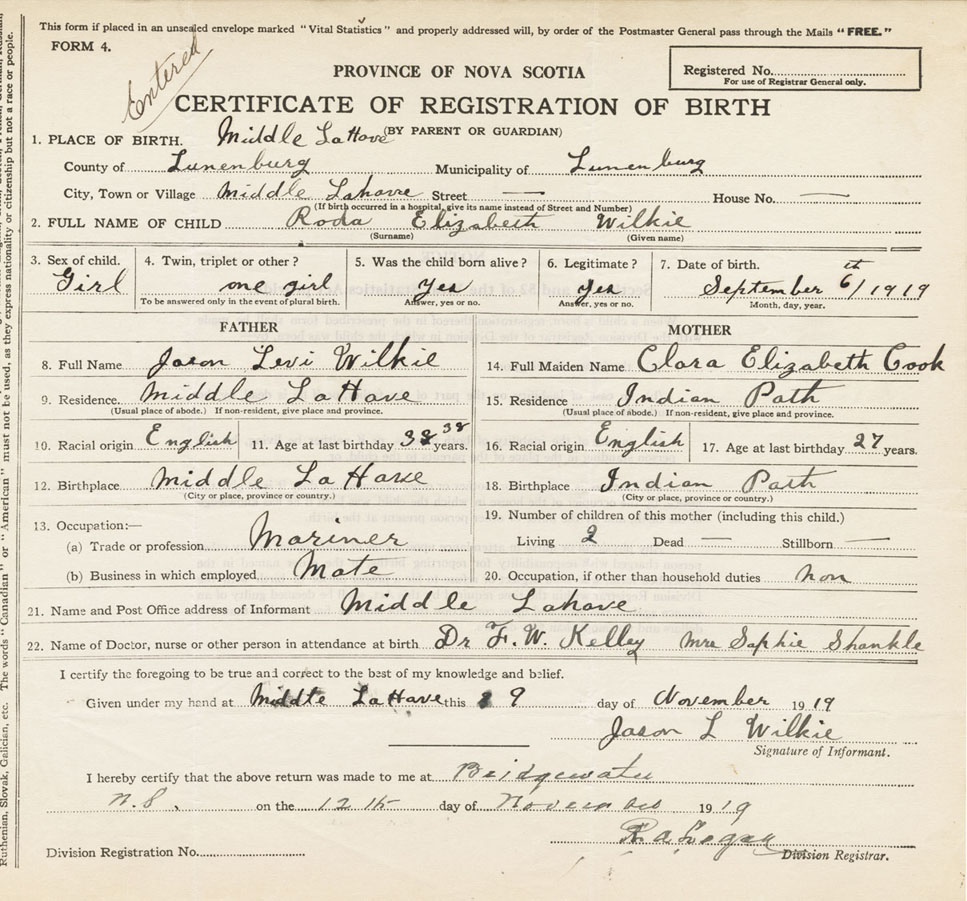 This form if placed in an unsealed envelope marked "Vital Statistics" and properly addressed will, by order of the Postmaster General pass through the Mails "FREE."
FORM 4.
Entered
PROVINCE OF NOVA SCOTIA
Registered No.
For use of Registrar General only.
CERTIFICATE OF REGISTRATION OF BIRTH
(BY PARENT OR GUARDIAN)
1. PLACE OF BIRTH. Middle LaHave
County of Lunenburg Municipality of Lunenburg
City, Town or Village Middle Lahave Street — House No. —
(If birth occurred in a hospital, give its name instead of Street and Number)
2. FULL NAME OF CHILD Roda Elizabeth Wilkie
(Surname) (Given name)
3. Sex of child. 4. Twin, triplet or other? 5. Was the child born alive? 6. Legitimate? 7. Date of birth.
Girl one girl yes yes September 6th/1919
To be answered only in the event of plural birth. Answer, yes or no. Answer, yes or no. Month, day, year.
FATHER
8. Full Name Jason Levi Wilkie
9. Residence. Middle LaHave
(Usual place of abode.) If non-resident, give place and province.
10. Racial origin English 11. Age at last birthday 38 38 years.
12. Birthplace Middle LaHave
(City or place, province or country.)
13. Occupation:—
(a) Trade or profession Mariner
(b) Business in which employed Mate
MOTHER
14. Full Maiden Name Clara Elizabeth Cook
15. Residence Indian Path
(Usual place of abode.) If non-resident, give place and province.
16. Racial origin English 17. Age at last birthday 27 years.
18. Birthplace Indian Path
(City or place, province or country.)
19. Number of children of this mother (including this child.)
Living 2 Dead — Stillborn —
20. Occupation, if other than household duties non
21. Name and Post Office address of Informant Middle Lahave
22. Name of Doctor, nurse or other person in attendance at birth Dr F. W. Kelley Mrs Sophie Shankle
I certify the foregoing to be true and correct to the best of my knowledge and belief.
Given under my hand at Middle LaHave this 9 day of November 1919
Jason L Wilkie
Signature of Informant.
I hereby certify that the above return was made to me at Bridgewater
N.S. on the 12th day of November 1919
Division Registration No.
Division Registrar.
Ruthenian, Slovak, Galician, etc. The words "Canadian" or "American" must not be used, as they express nationality or citizenship but not a race or people.